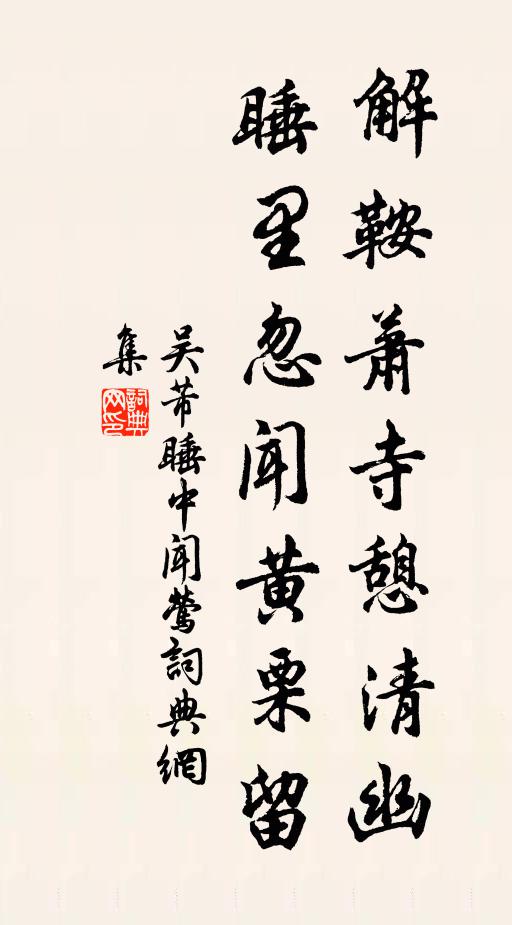 解鞍蕭寺憩清幽
睡里忽闻黄栗留
吴芾睡中闻鶯詞典網
集
詞典
网印